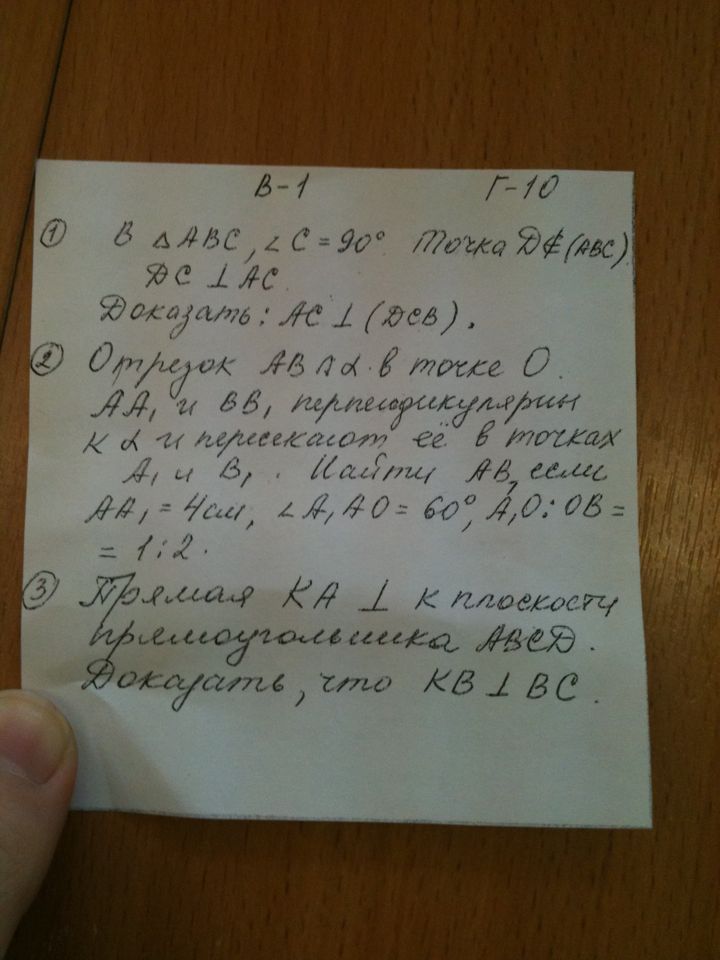 В-1 Г-10
① В △ABC, ∠C = 90° Точка D∉(ABC).
DC ⊥ AC.
Доказать: AC ⊥ (DCB).
② Отрезок AB ∩ α в точке O.
AA₁ и BB₁ перпендикулярны
к α и пересекают её в точках
A₁ и B₁. Найти AB, если
AA₁ = 4см, ∠A₁AO = 60°, A₁O : OB =
= 1 : 2.
③ Прямая KA ⊥ к плоскости
прямоугольника ABCD.
Доказать, что KB ⊥ BC.